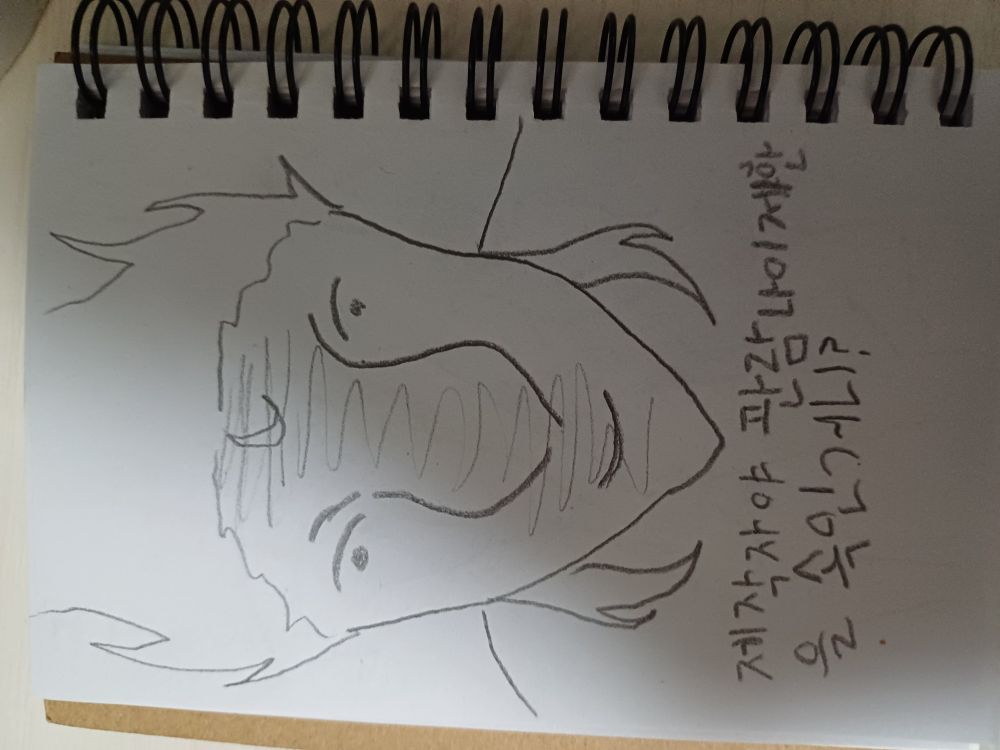 제작자야 관람나이제한
을 속인거니?